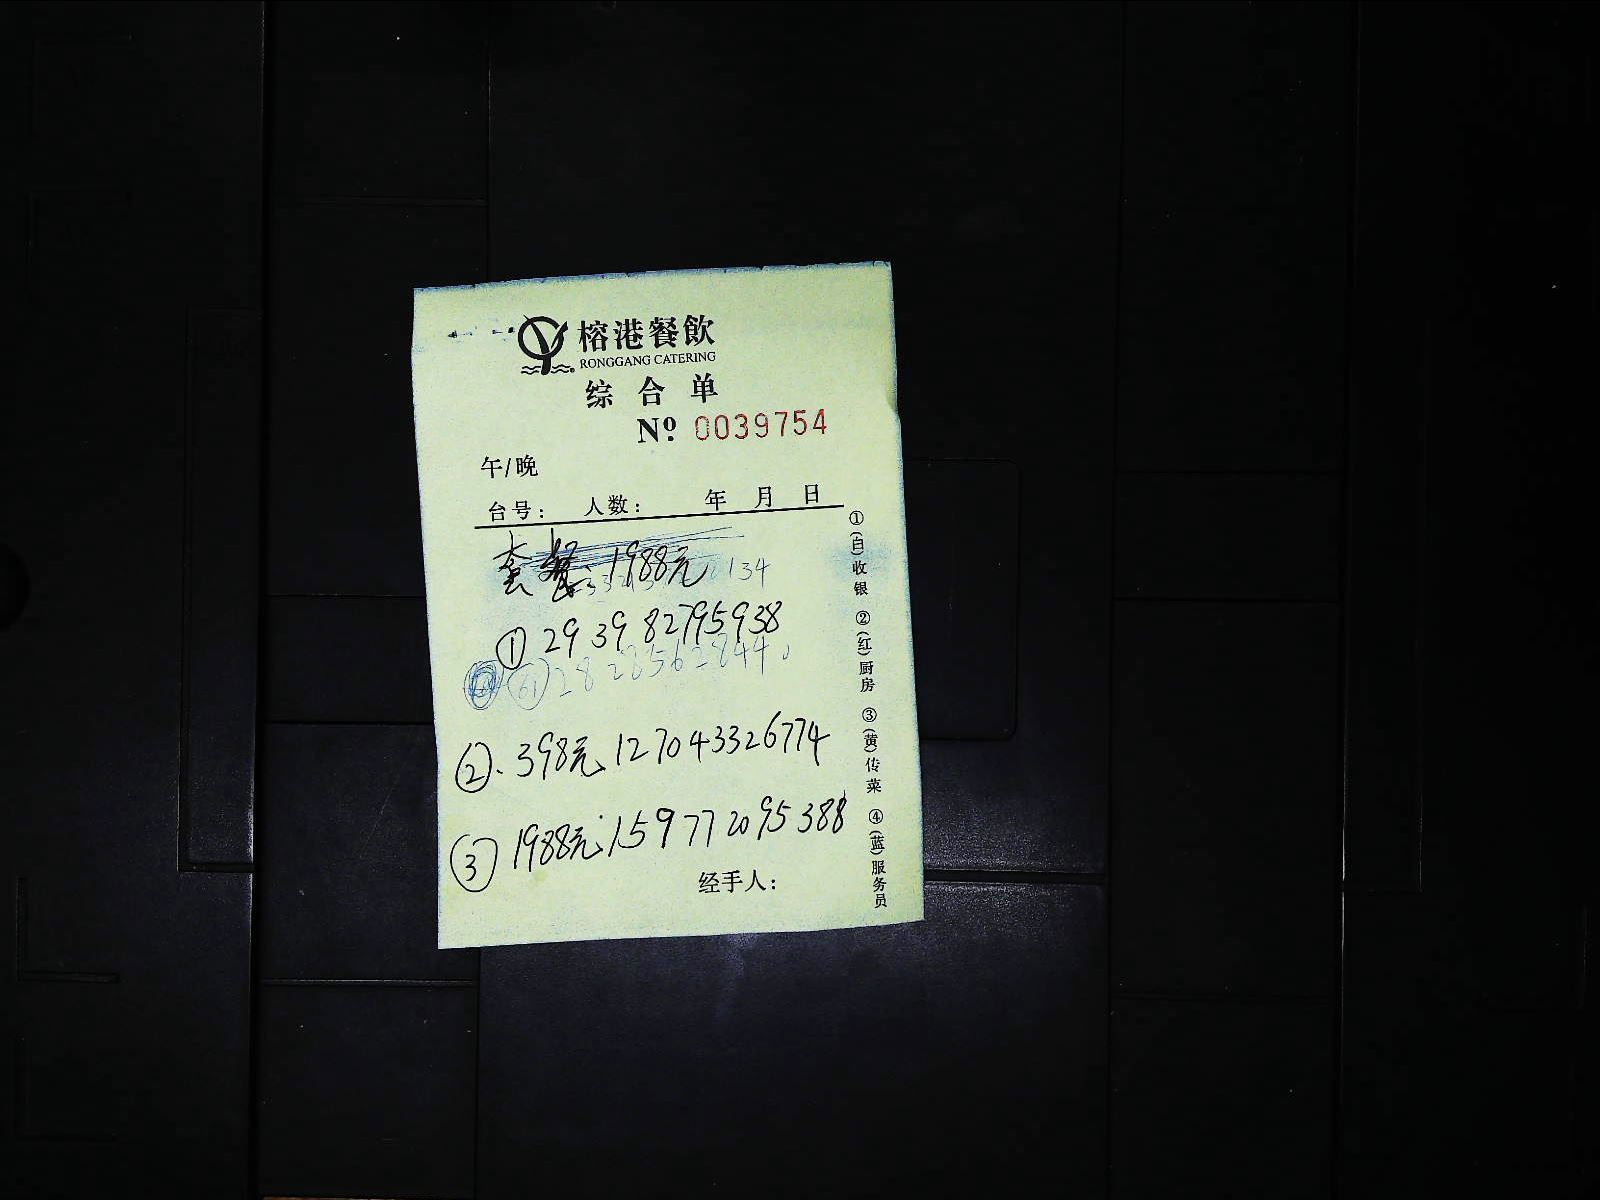 榕港餐飲
RONGGANG CATERING
综合单
Nº 0039754
午/晚
台号: 人数: 年 月 日
套餐:1988元
134
① 2939 82795938
61 2828562844
②. 398元 127043326774
③ 1988元 159772095388
经手人:
①(白)收银 ②(红)厨房 ③(黄)传菜 ④(蓝)服务员